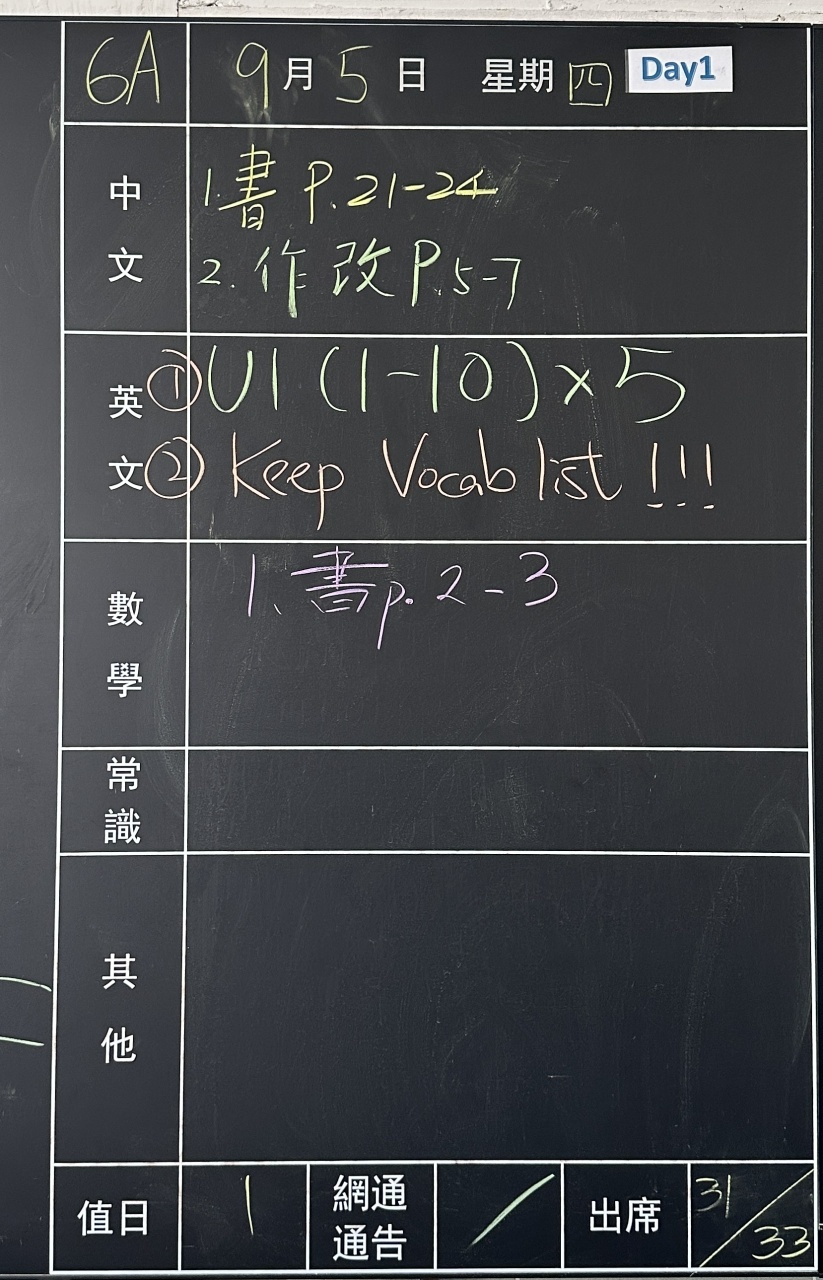 6A 9月5日 星期四 Day1
中文
1.書 P.21-24
2.作改P.5-7
英文
①U1 (1-10)×5
②Keep Vocab list !!!
數學
1、書p.2-3
常識
其他
值日 1 網通通告 / 出席 31/33